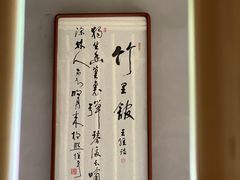 竹里館
王維詩
獨坐幽篁裏彈琴復長嘯
深林人不知明月来相照